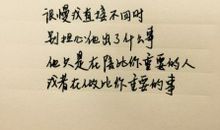 很慢或直接不回时
别担心他出了什么事
他只是在陪比你重要的人
或者在做比你重要的事